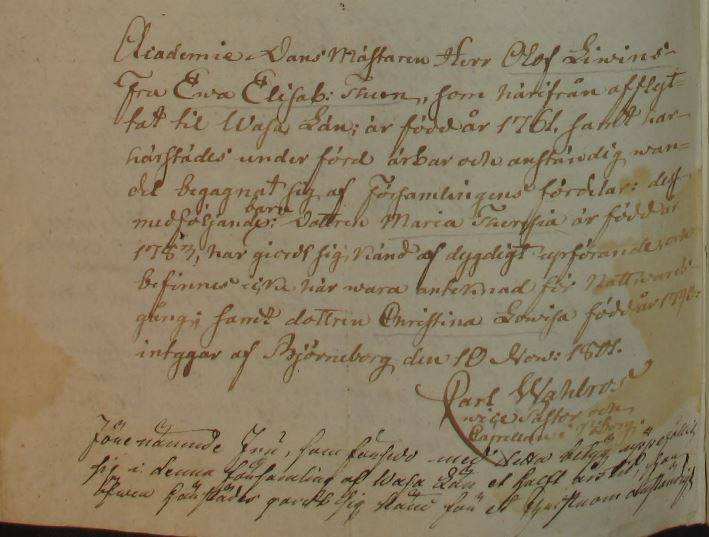 Academie Dans Mästaren Herr Olof Liwins
Fru Ewa Elisab: Thun, som härifrån afflyt=
tat til Wasa Län; är född år 1761. samt har
härstädes under förd ärbar och anständig wan=
del begagnat sig af Församlingens fördelar: dess
medföljande: barn Dottren Maria Theresia är född år
1783, har giordt sig känd af dygdigt upförande, och
befinnes icke här wara antecknad för Nattwards
gång; samt dottren Christina Lowisa född år 1790:
intygar af Björneborg den 10 Nov: 1801.
Carl Wahlroos
vice Pastor och
Capellan i Bborg
Före nämnde Fru, som med detta betyg
sig i denna församling af Wasa Län et haft
äfwen härstädes sig känd för et